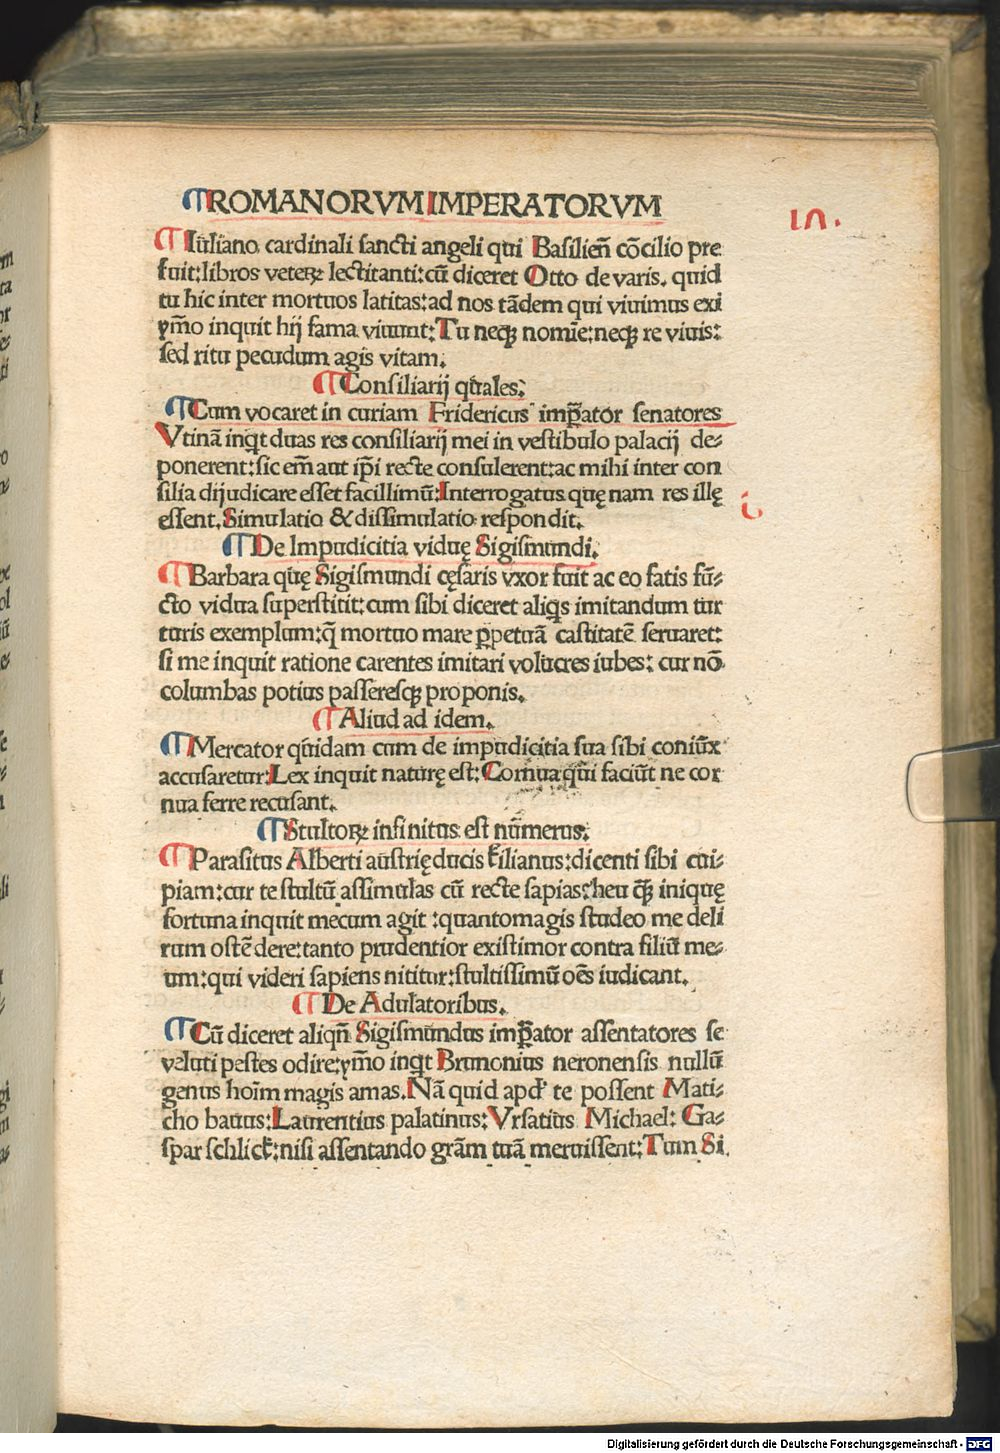 ROMANORVM IMPERATORVM
Iuliano cardinali sancti angeli qui Basilieñ cōcilio pre
fuit:libros veteꝝ lectitanti:cū diceret Otto de varis. quid
tu hic inter mortuos latitas:ad nos tādem qui viuimus exi
ymo inquit hij fama viuunt:Tu neqꝫ nomīe:neqꝫ re viuis:
sed ritu pecudum agis vitam.
Consiliarij q̄rales:
Cum vocaret in curiam Fridericus imp̄ator senatores
Vtinā inqt duas res consiliarij mei in vestibulo palacij de⸗
ponerent:sic em̄ aut ip̄i recte consulerent:ac mihi inter con
silia dijudicare esset facillimū:Interrogatus quę nam res illę
essent. Simulatio & dissimulatio respondit.
De Impudicitia viduę Sigismundi.
Barbara q̄uę Sigismundi cęsaris vxor fuit ac eo fatis fū⸗
cto vidua superstitit:cum sibi diceret aliqs imitandum tur
turis exemplum:q̄ mortuo mare ꝑpetuā castitatē seruaret:
si me inquit ratione carentes imitari volucres iubes: cur nō
columbas potius passeresqꝫ proponis.
Aliud ad idem.
Mercator q̄uidam cum de impudicitia sua sibi coniūx
accusaretur:Lex inquit naturę est:Cornua q̄ui faciūt ne cor
nua ferre recusant.
Stultoꝝ infinitus est nūmerus:
Parasitus Alberti austrię ducis k̄ilianus:dicenti sibi cui⸗
piam:cur te stultū assimulas cū recte sapias:heu q̄ꝫ iniquę
fortuna inquit mecum agit :quantomagis studeo me deli
rum ostēdere:tanto prudentior existimor contra filiū me⸗
um:qui videri sapiens nititur:stultissimū oēs iudicant.
De Adulatoribus.
Cū diceret aliqn̄ Sigismundus imp̄ator assentatores se
veluti pestes odire:ymo inqt Brunonius neronensis nullū
genus hoīm magis amas.Nā quid apd' te possent Mati⸗
cho bauus:Laurentius palatinus:Vrsatius Michael: Ga⸗
spar schlick:nisi assentando grām tuā meruissent:Tum Si
Digitalisierung gefördert durch die Deutsche Forschungsgemeinschaft - DFG